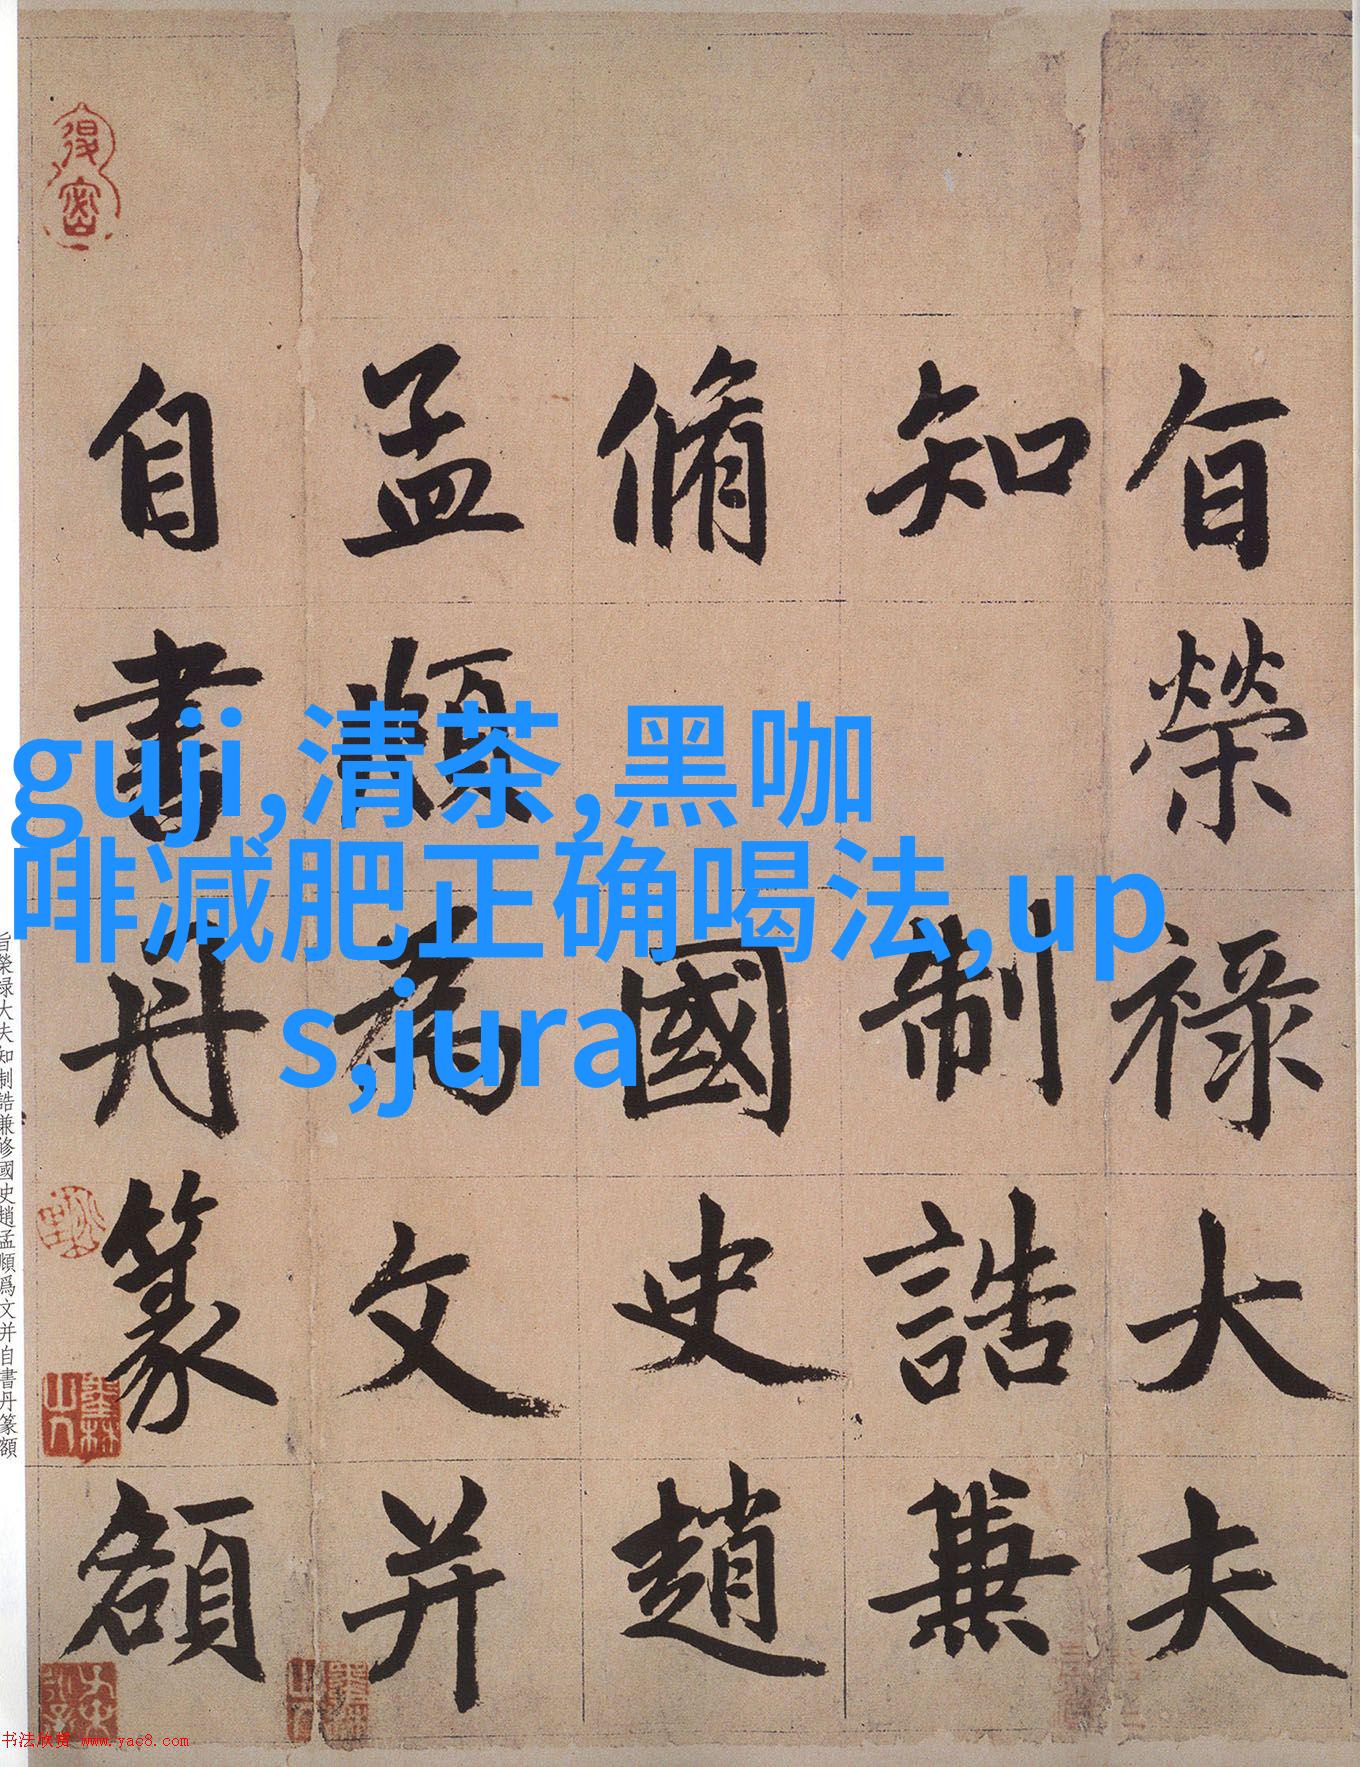 旨榮祿大夫
知制誥兼
脩國史趙
孟頫為文并
自書丹篆額
guji,清茶,黑咖
啡减肥正确喝法,up
s,jura
旨榮禄大夫知制誥兼修國史趙孟頫爲文并自書丹篆額
书法欣赏 www.yac8.com